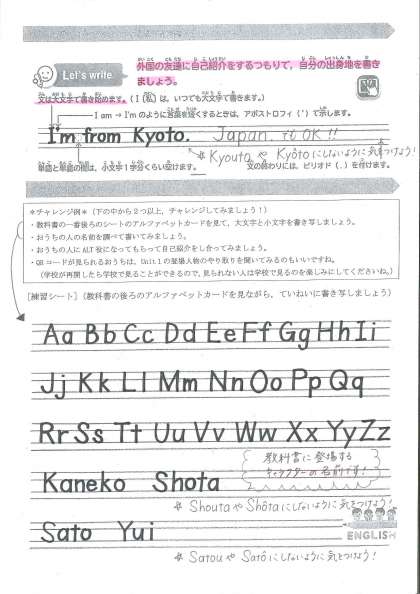 Let's write
外国の友達に自己紹介をするつもりで，自分の出身地を書きましょう。
文は大文字で書き始めます。（I（私）は，いつでも大文字で書きます。）
I am → I'm のように言葉を短くするときは，アポストロフィ（'）で示します。
I'm from Kyoto. Japan. でも OK !!
☆ Kyouto や Kyôto にしないように気をつけよう!
単語と単語の間は，小文字1字分くらい空けます。 文の終わりには，ピリオド（.）を付けます。
＊チャレンジ例＊（下の中から2つ以上，チャレンジしてみましょう！）
・教科書の一番後ろのシートのアルファベットカードを見て，大文字と小文字を書き写しましょう。
・おうちの人の名前を調べて書いてみましょう。
・おうちの人にALT役になってもらって自己紹介をし合ってみましょう。
・QRコードが見られるおうちは，Unit 1の登場人物のやり取りを聞いてみるのもいいですね。
（学校が再開したら学校で見ることができるので，見られない人は学校で見るのを楽しみにしてくださいね。）
［練習シート］（教科書の後ろのアルファベットカードを見ながら，ていねいに書き写しましょう）
Aa Bb Cc Dd Ee Ff Gg Hh Ii
Jj Kk Ll Mm Nn Oo Pp Qq
Rr Ss Tt Uu Vv Ww Xx Yy Zz
教科書に登場する
キャラクターの名前です!
Kaneko Shota
☆ Shouta や Shôta にしないように気をつけよう!
Sato Yui
ENGLISH
☆ Satou や Satô にしないように気をつけよう!